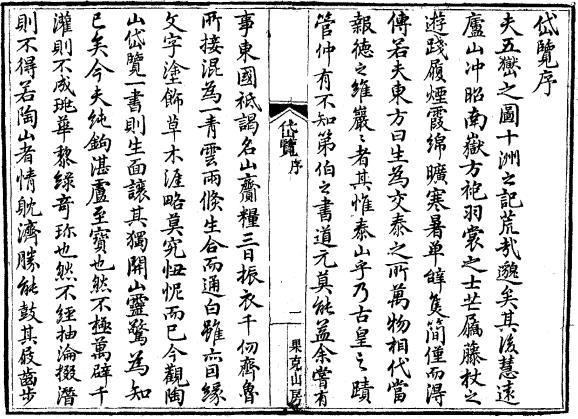 岱覽序
夫五嶽之圖十洲之記荒哉邈矣其後慧遠
廬山沖昭南嶽方袍羽裳之士芒屩藤杖之
遊踐履煙霞綿曠寒暑單辭隻簡僅而得
傳若夫東方曰生爲交泰之所萬物相代當
報德之維巖巖者其惟泰山乎乃古皇之蹟
管仲有不知第伯之書道元莫能益余嘗有
岱覽 序 一 果克山房
事東國祗謁名山齎糧三日振衣千仞齊魯
所接混爲一青雲雨倐生合而通白雖六日緣
文字塗飾草木涯略莫究忸怩而已今觀陶
山岱覽一書則生面讓其獨開山靈驚爲知
已矣今夫純鉤湛盧至寶也然不極萬辟千
灌則不成珧華黎綠奇珎也然不經抽淪掇潛
則不得若陶山者情耽濟勝能鼓其屐齒步